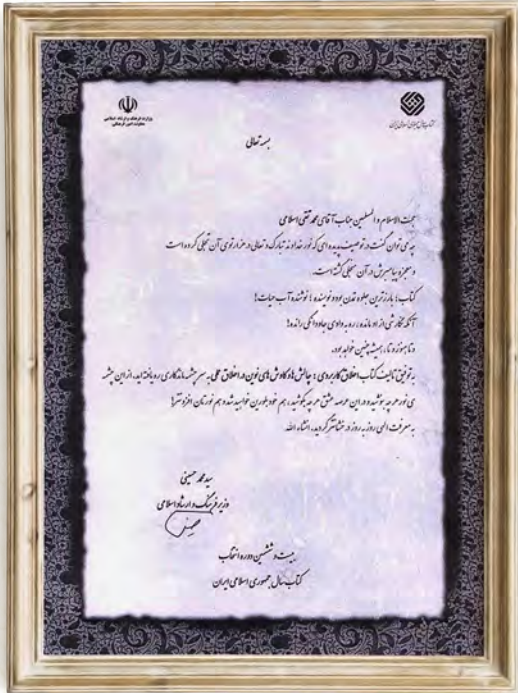 وزارت فرهنگ و ارشاد اسلامی
معاونت امور فرهنگی
کتاب سال جمهوری اسلامی ایران
بسمه تعالی
حجت الاسلام و المسلمین جناب آقای محمد تقی اسلامی
چه می توان گفت در توصیف پدیده ای که نور خداوند تبارک و تعالی در هزار توی آن تجلی کرده است
و معجزه پیامبرش در آن متجلی گشته است.
کتاب؛ بارزترین جلوه تمدن بود و نویسنده؛ نوشنده آب حیات!
آنکه نگارشی از او مانده، ره به وادی جاودانگی رانده!
و تا بوده و تا همیشه چنین خواهد بود.
به توفیق تالیف کتاب اخلاق کاربردی؛ چالش ها و کاوش های نوین در اخلاق عملی به سرچشمه ماندگاری ره یافته اید. از این چشمه
ی نور هر چه بنوشید و در این عرصه عشق هر چه بکوشید، هم خود بلورین خواهید شد و هم نورتان افزونتر!
به معرفت الهی روز به روز درخشانتر گردید، انشاء الله.
سید محمد حسینی
وزیر فرهنگ و ارشاد اسلامی
بیست و ششمین دوره انتخاب
کتاب سال جمهوری اسلامی ایران